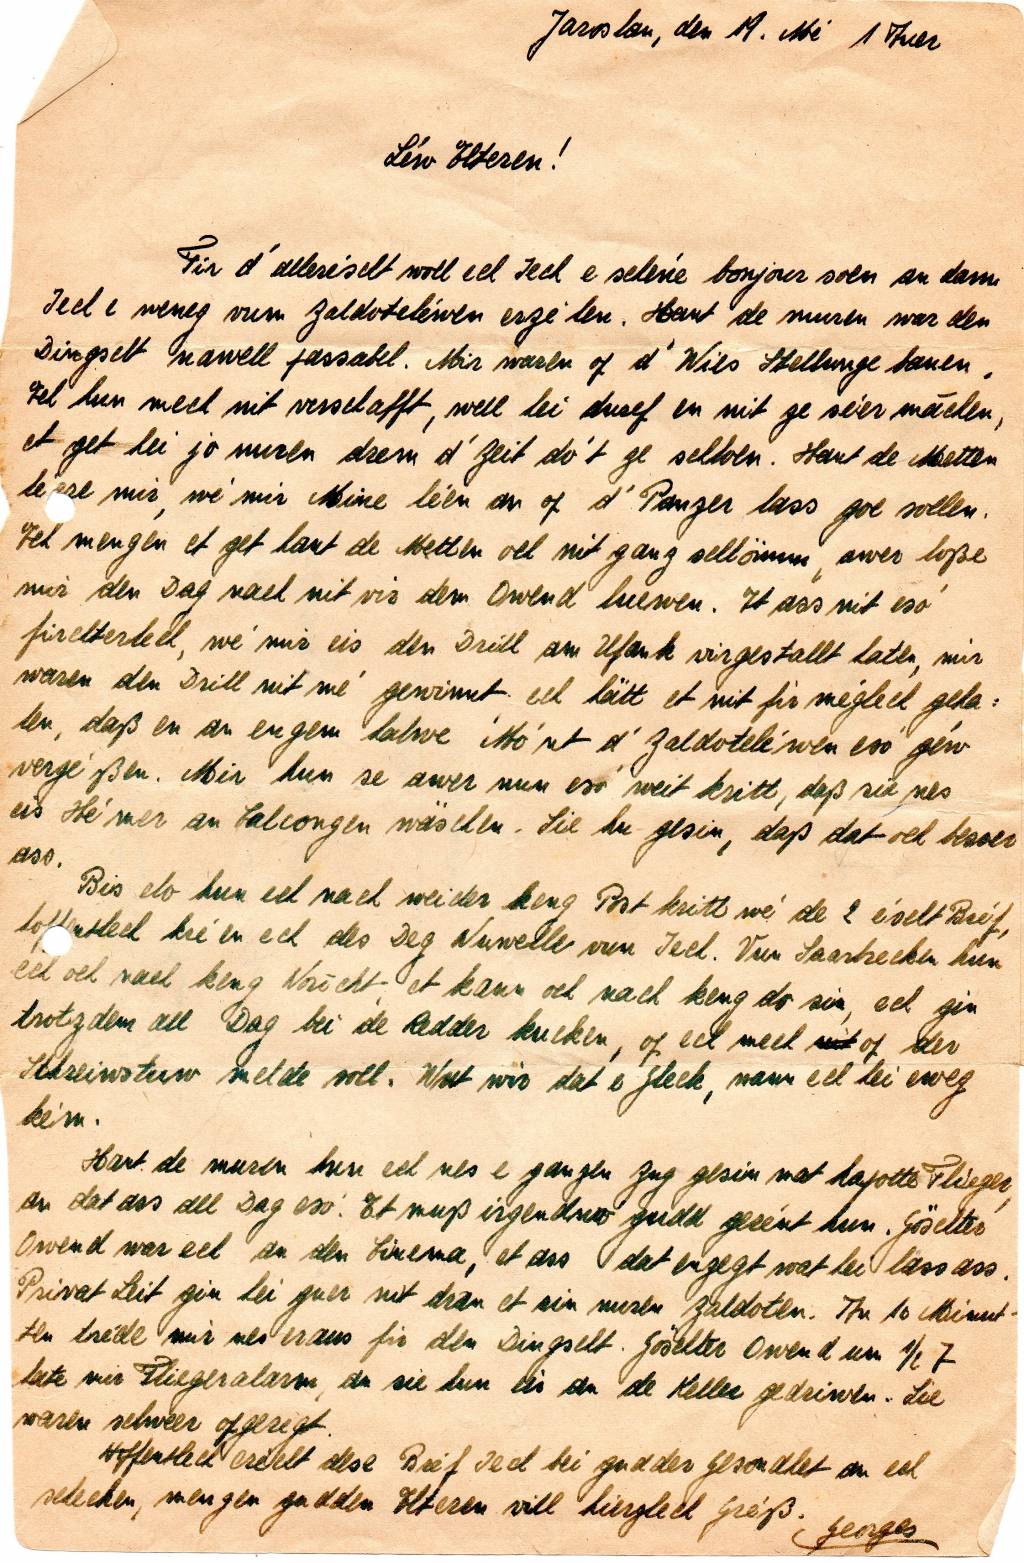 Jaroslau, den 19. Mé 1 Auer
Léw Elteren!
Fir d'alleréischt woll ech Iech e schéine bonjour soen an dann
Iech e weneg vum Zaldoteléwen erzielen. Haut de muren war den
Dingscht nawell passabel. Mir waren of d'Wies Stellunge bauen.
Ech hun mech nit verschafft, well hei duref en nit ze séier mächen,
et get hei jo nuren drem d'Zeit do't ze schloen. Haut de Metten
léiere mir, wé mir Mine léen an of d'Panzer lass goe sollen.
Ech mengen et get haut de Metten och nit ganz schlömm, awer loße
mir den Dag nach nit vir dem Owend luewen. Et ass nit esó
firchterlech, wé mir eis den Drill am Ufank virgestallt haten, mir
waren den Drill nit mé gewinnt. ech hätt et nit fir méglech geha-
len, daß en an engem halwe Mo'nt d'Zaldoteléwen esó géw
vergé ßen. Mir hun se awer nun esó weit kritt, daß sie nes
eis Hé'mer an Calcongen wäschen. Sie hu gesin, daß dat och besser
ass.
Bis elo hun ech nach weider keng Post kritt wé de 2 éischt Bréf,
hoffentlech kré en ech des Deg Nuwelle vun Iech. Vun Saarbrecken hun
ech och nach keng Noricht, et kann och nach keng do sin, ech gin
trotzdem all Dag bei de Redder kucken, of ech mech nit of der
Schreiwstuw melde soll. Wat wir dat e Gleck, wann ech hei eweg
kém.
Haut de muren hun ech nes e ganzen Zug gesin mat kapotte Flieger,
an dat ass all Dag esó. Et muß irgendwo gudd gerént hun. Göschter
Owend war ech an den Cinema, et ass dat enzegt wat hei lass ass.
Privat Leit gin hei guer nit dran et sin nuren Zaldoten. An 10 Minut-
ten tréde mir nes eraus fir den Dingscht. Göschter Owend um ½ 7
hate mir Fliegeralarm, an sie hun eis an de Keller gedriwen. Sie
waren schweer ofgeregt.
Hoffentlech eréecht dese Bréf Iech bei gudder Gesondhet an ech
schecken, mengen gudden Elteren vill hierzlech Gréß.
Georges